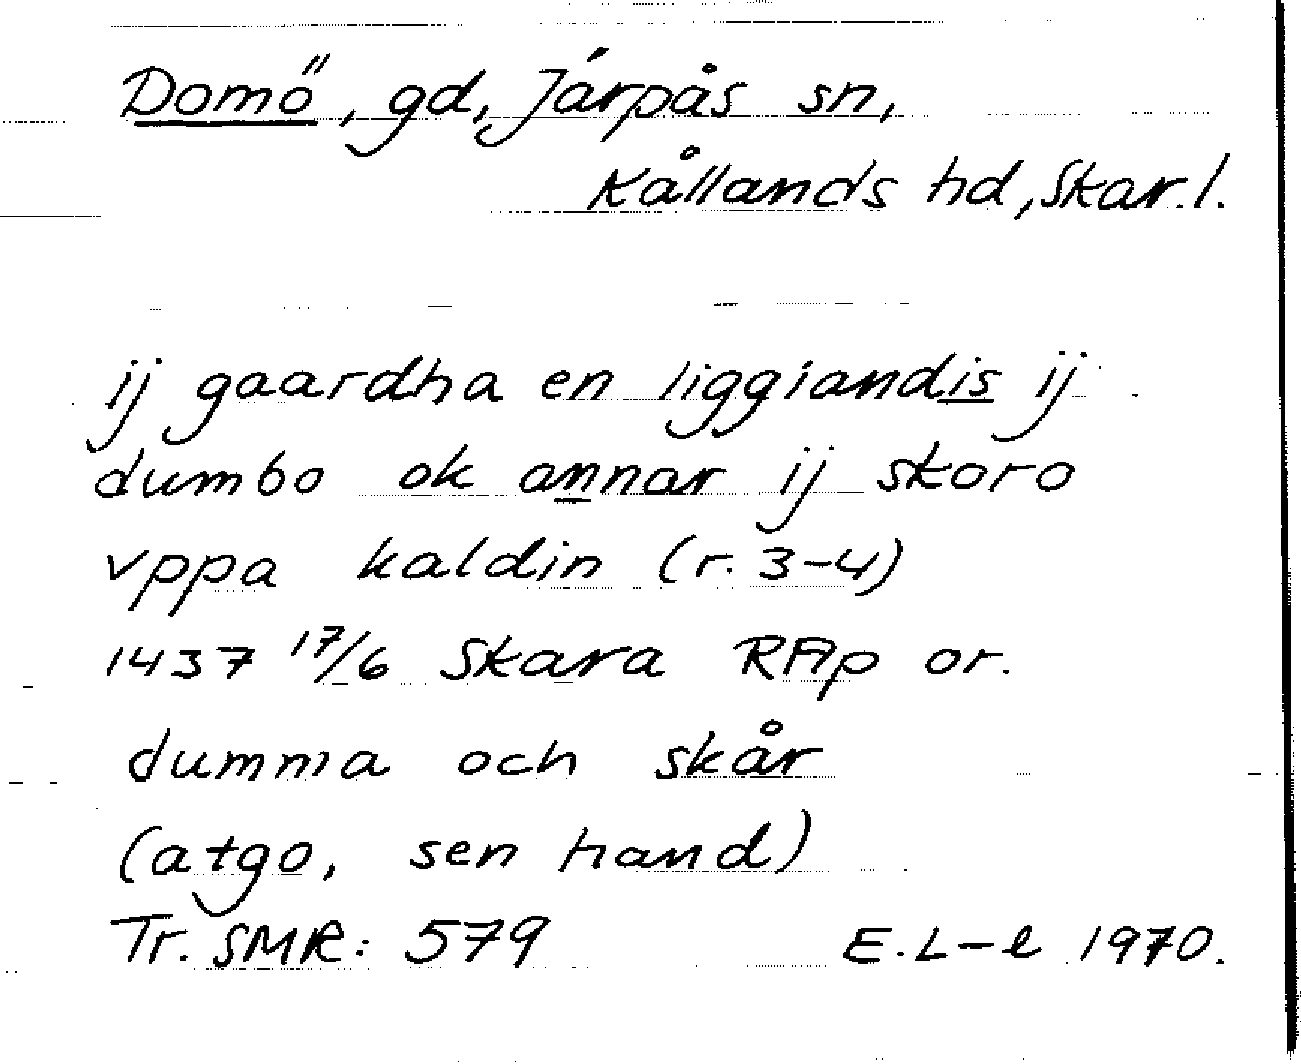 Domö, gd, Järpås sn,
Kållands hd, Skar. l.
ij gaardha en liggiandis ij
dumbo ok annar ij skoro
vppa kaldin (r. 3-4)
1437 17/6 Skara RAp or.
dumma och skår
(atgo, sen hand)
Tr. SMR: 579 E. L-l 1970.